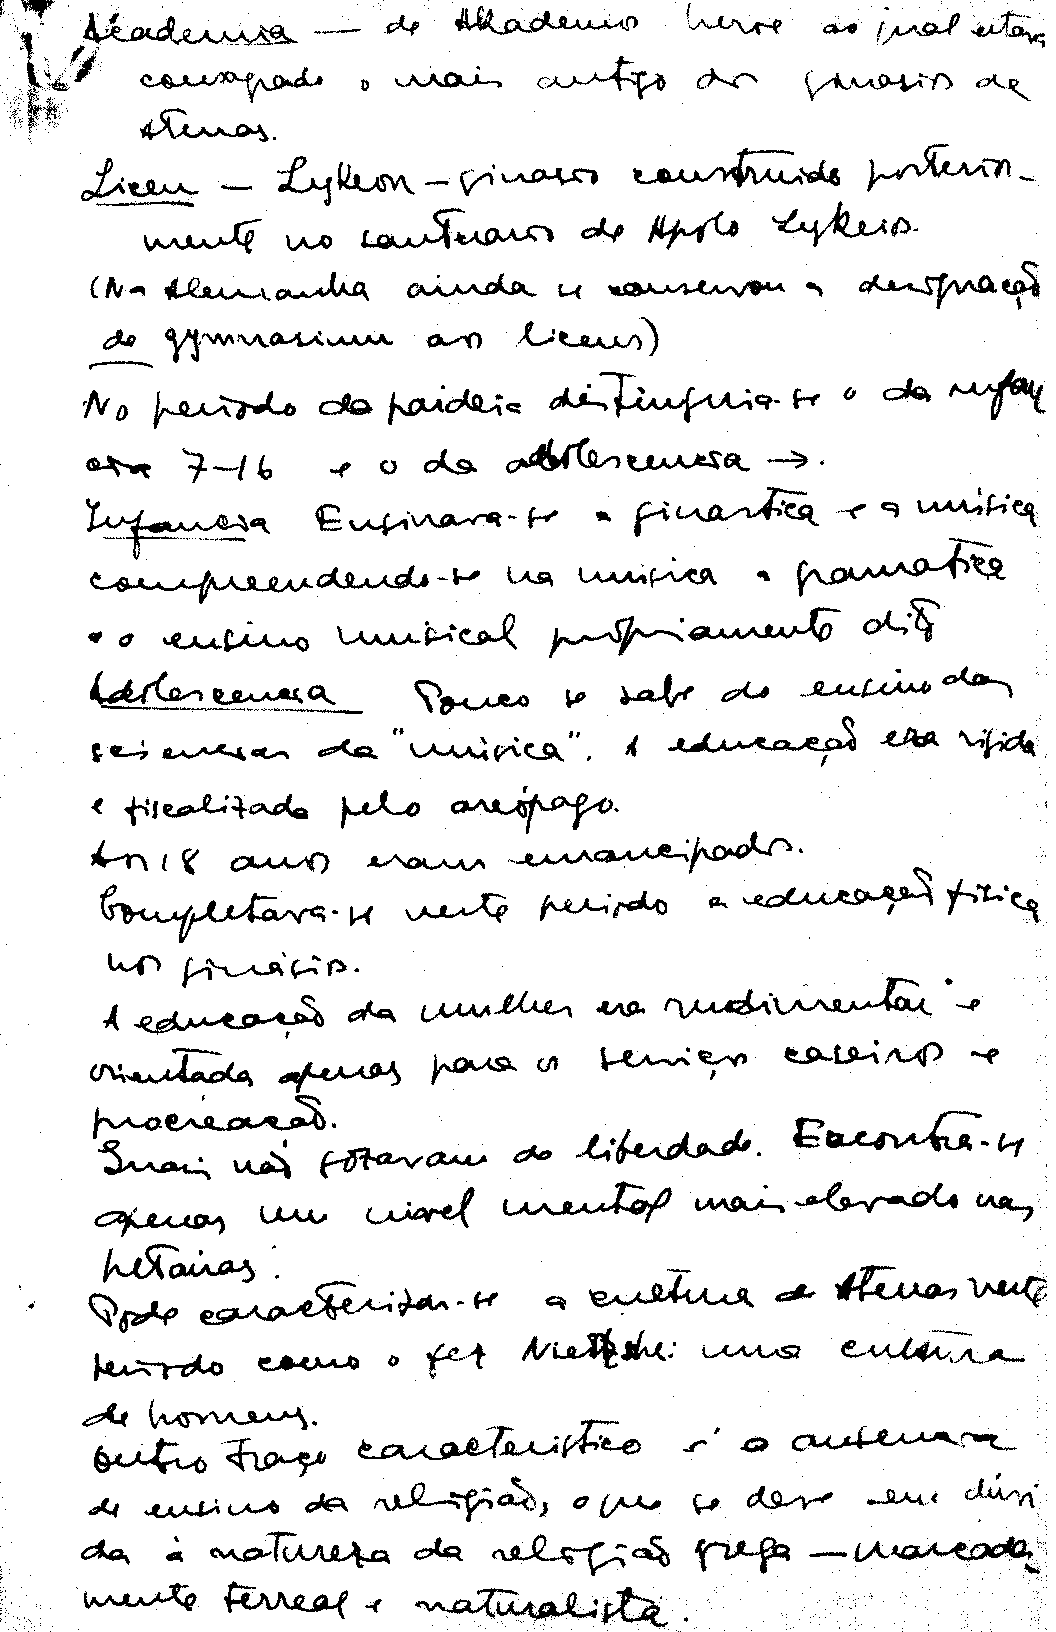 Academia — de Akademos heroe ao qual estava
consagrado o mais antigo dos ginasios de
Atenas.
Liceu — Lykeon — ginasio construido posterior-
mente no santuario de Apolo Lykeios.
(Na Alemanha ainda se conservou a designação
de gymnasium aos liceus)
No periodo da paideia distinguia-se o da
7-16 e o da adolescencia →.
Infancia Ensinava-se a ginastica e a música
compreendendo-se na música a gramatica
e o ensino musical propriamente dito
Adolescencia Pouco se sabe do ensino das
sciencias da "música". A educação era rigida
e fiscalizada pelo areópago.
Aos 18 anos eram emancipados.
Completava-se neste periodo a educação fisica
nos ginásios.
A educação da mulher era rudimentar e
orientada apenas para os serviços caseiros e
procreação.
não gozavam de liberdade. Encontra-se
apenas um nivel mental mais elevado nas
hetairas.
Pode caracterizar-se a cultura de Atenas neste
periodo como o fez Nietzshe: uma cultura
de homens.
Outro traço caracteristico é a ausencia
de ensino da religião, o que se deve em dúvi
da à natureza da religião grega — marcada-
mente terreal e naturalista.